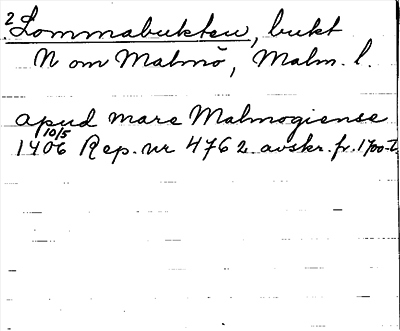 2 Lommabukten, bukt
N om Malmö, Malm. l.
apud mare Malmogiense
1406 10/5 Rep. nr 4762. avskr. fr. 1700-t.